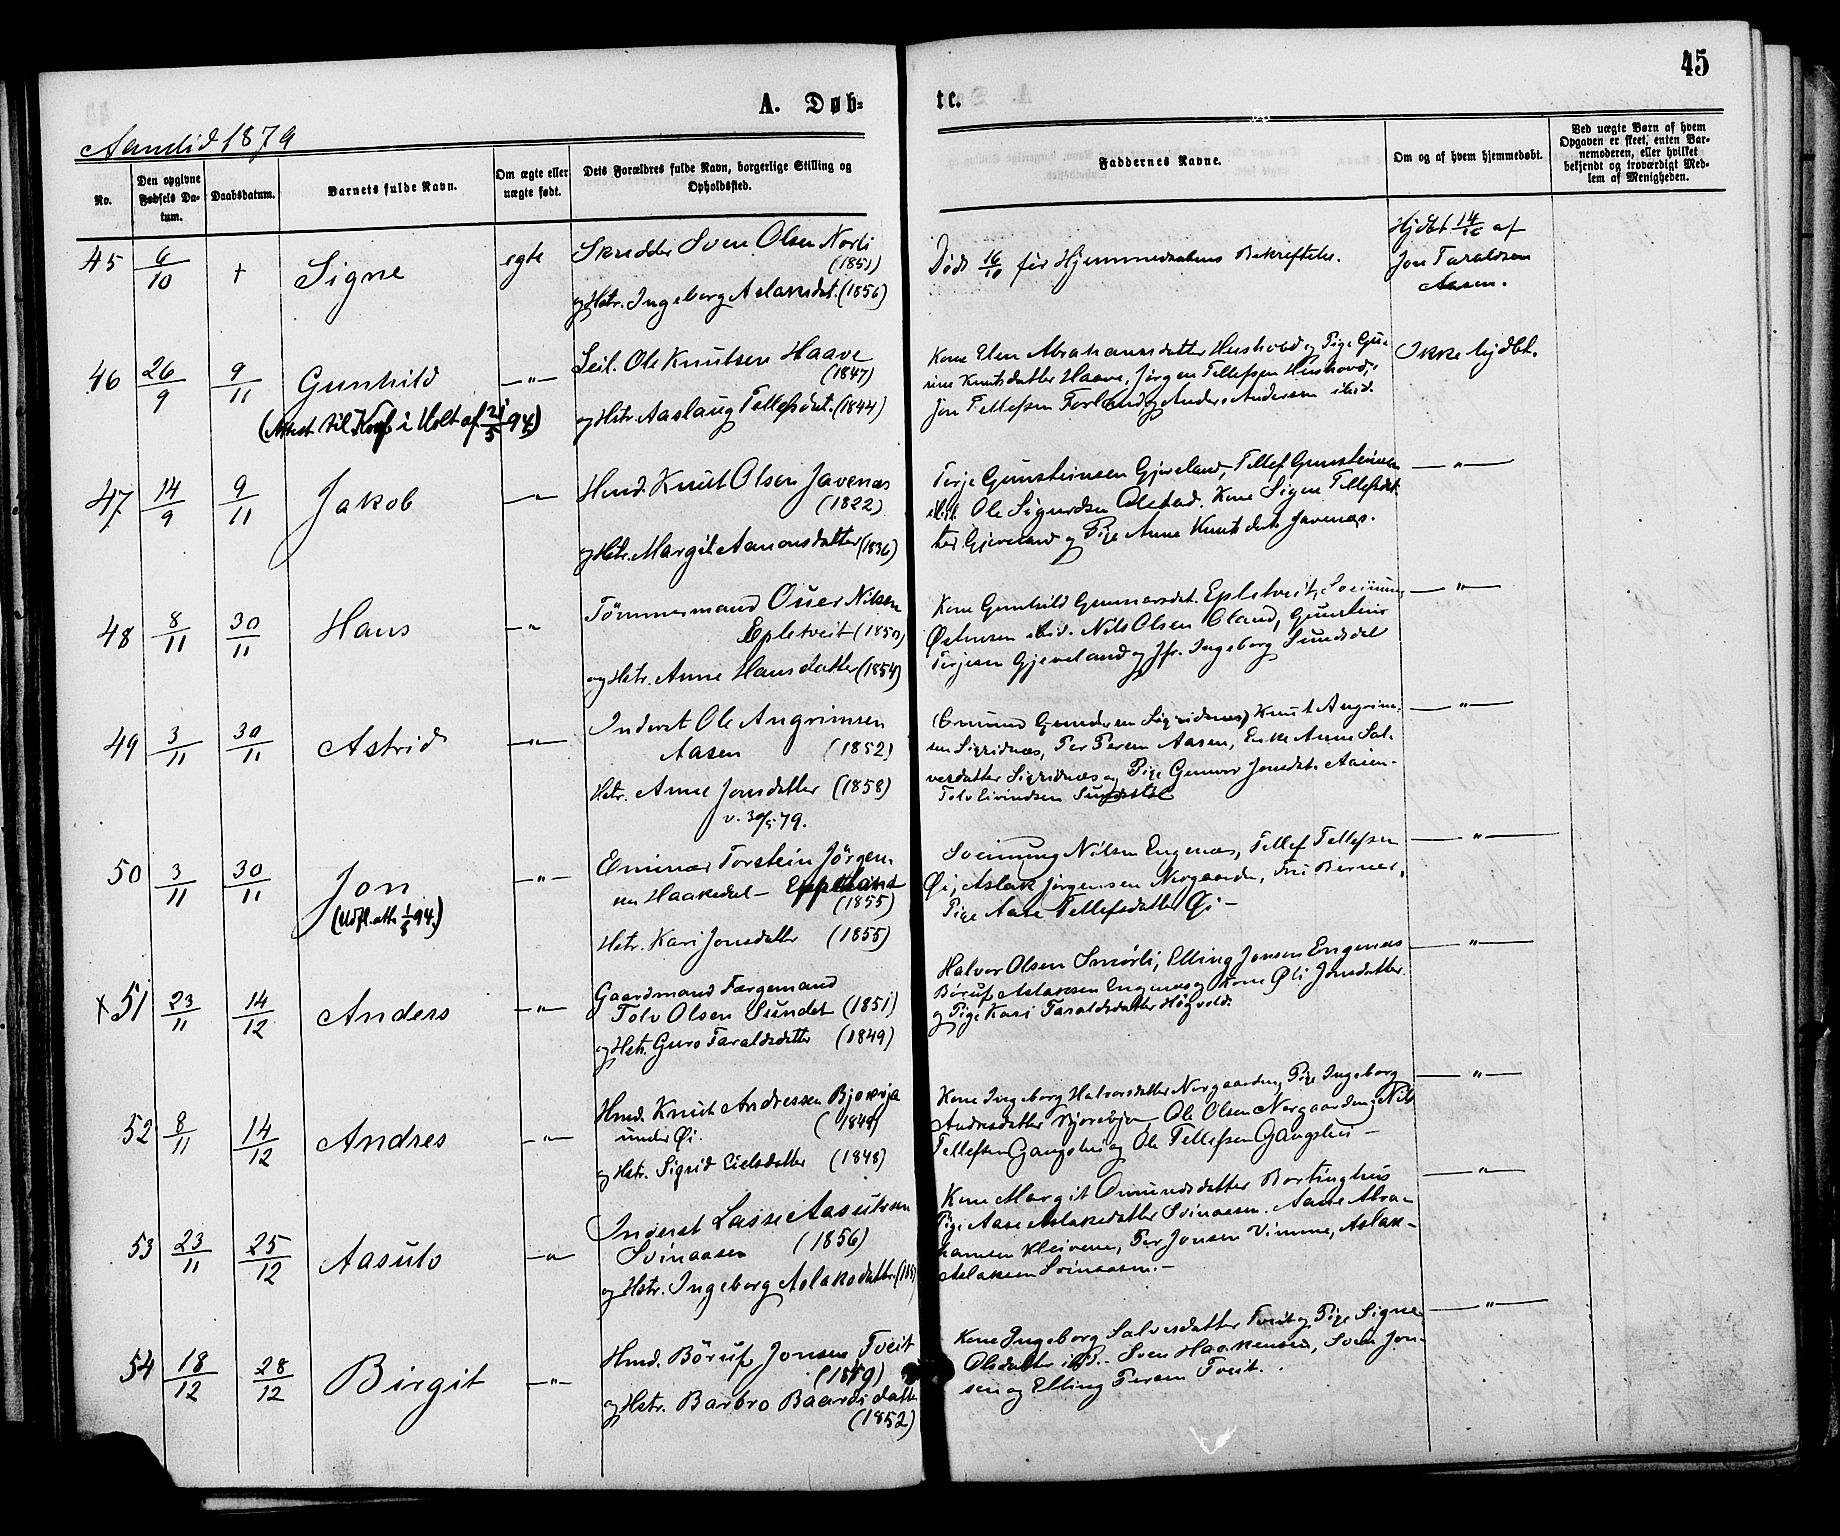 45
A. Døb-
te.
Aamlid 1879
No.
Den opgivne Fødsels Datum.
Daabsdatum.
Barnets fulde Navn.
Om ægte eller uægte født.
Dets Forældres fulde Navn, borgerlige Stilling og Opholdssted.
Faddernes Navne.
Om og af hvem hjemmedøbt.
Ved uægte Børn af hvem Opgaven er skeet, enten Barnemoderen, eller hvilket bekjendt og troværdigt Medlem af Menigheden.
45 6/10 + Signe egte
Skredder Sven Olsen Norli
(1851)
og Hstr. Ingeborg Aslaksdat. (1856)
Død 16/10 før Hjemmedaabens Bekræftelse.
Hjdbt 14/10 af
Jon Taraldsen
Aasen.
46 26/9 9/11 Gunhild —"—
(Attest til Konf i Holt af 21/5 94)
Seil. Ole Knutsen Haave
(1847)
og Hstr. Aaslaug Tellefsdat. (1844)
Kone Elen Abrahamsdatter Hushovd og Pige Gu-
rine Knutsdatter Haave, Jørgen Tellefsen Hushovd,
Jon Tellefsen Forland og Anders Andersen ibid.
Ikke hjdbt.
47 14/9 9/11 Jakob —"—
Hmd. Knut Olsen Javenæs
(1822)
og Hstr. Margit Aanonsdatter (1836)
Terje Gunsteinsen Gjeveland, Tellef Gunsteinsen
ibid. Ole Sigurdsen Olstad. Kone Signe Tellefsdat-
ter Gjeveland og Pige Anne Knutsdat. Javenæs.
—"—
48 8/11 30/11 Hans —"—
Tømmermand Ouer Nilsen
Epletveit (1850)
og Hstr. Anne Hansdatter (1854)
Kone Gunhild Gunnarsdat. Epletveit, Sveinung
Østensen ibid. Nils Olsen Oland, Gunstein
Terjesen Gjeveland og Jfr. Ingeborg Sundsdal
—"—
49 3/11 30/11 Astrid —"—
Inderst Ole Angrimsen
Aasen (1852)
Hstr. Anne Jonsdatter (1858)
v. 30/5 79.
Omund Gundersen Sigridnæs, Knut Angrim-
sen Sigridnæs, Per Persen Aasen, Enke Anne Sal-
vesdatter Sigridnæs og Pige Gunvor Jonsdat. Aasen-
Tolv Eivindsen Sundsdal
—"—
50 3/11 30/11 Jon —"—
(Udfl. att. 1/8 94.)
Eminar Torstein Jørgen-
sen Haakedal —
(1855)
Hstr. Kari Jonsdatter (1855)
Sveinung Nilsen Engenæs, Tellef Tellefsen
Øi, Aslak Jørgensen Norgaarden, Fru Berner,
Pige Aase Tellefsdatter Øi —
—"—
x 51 23/11 14/12 Anders —"—
Gaardmand Færgemand
Tolv Olsen Sundet (1851)
og Hstr. Guro Taraldsdatter (1849)
Halvor Olsen Smørli, Elling Jonsen Engenæs
Børuf Aslaksen Engenæs og Kone Øli Jonsdatter
og Pige Kari Taraldsdatter Høgvold.
—"—
52 8/11 14/12 Andres —"—
Hmd. Knut Andressen Bjorøja
under Øi. (1848)
og Hstr. Sigrid Eielsdatter (1848)
Kone Ingeborg Halvorsdatter Norgaarden, Pige Ingeborg
Andresdatter Ole Olsen Norgaarden, Nils
Tellefsen Gangshei og Ole Tellefsen Gangshei —
—"—
53 23/11 25/12 Aasulv —"—
Inderst Lasse Aasulvsen
Svinaasen (1856)
og Hstr. Ingeborg Aslaksdatter
Kone Margit Omundsdatter Bortinghus
Pige Aase Aslaksdatter Svinaasen. Aane Abra-
hamsen Kleivene, Per Jonsen Vimme, Aslak
Aslaksen Svinaasen. —
—"—
54 18/12 28/12 Birgit —"—
Hmd. Børuf Jonsen Tveit
(1849)
og Hstr. Barbro Baardsdatter
(1852)
Kone Ingeborg Salvesdatter Tveit og Pige Signe
Olsdatter ibd. Sven Haakensen, Sven Jon-
sen og Elling Persen Tveit.
—"—